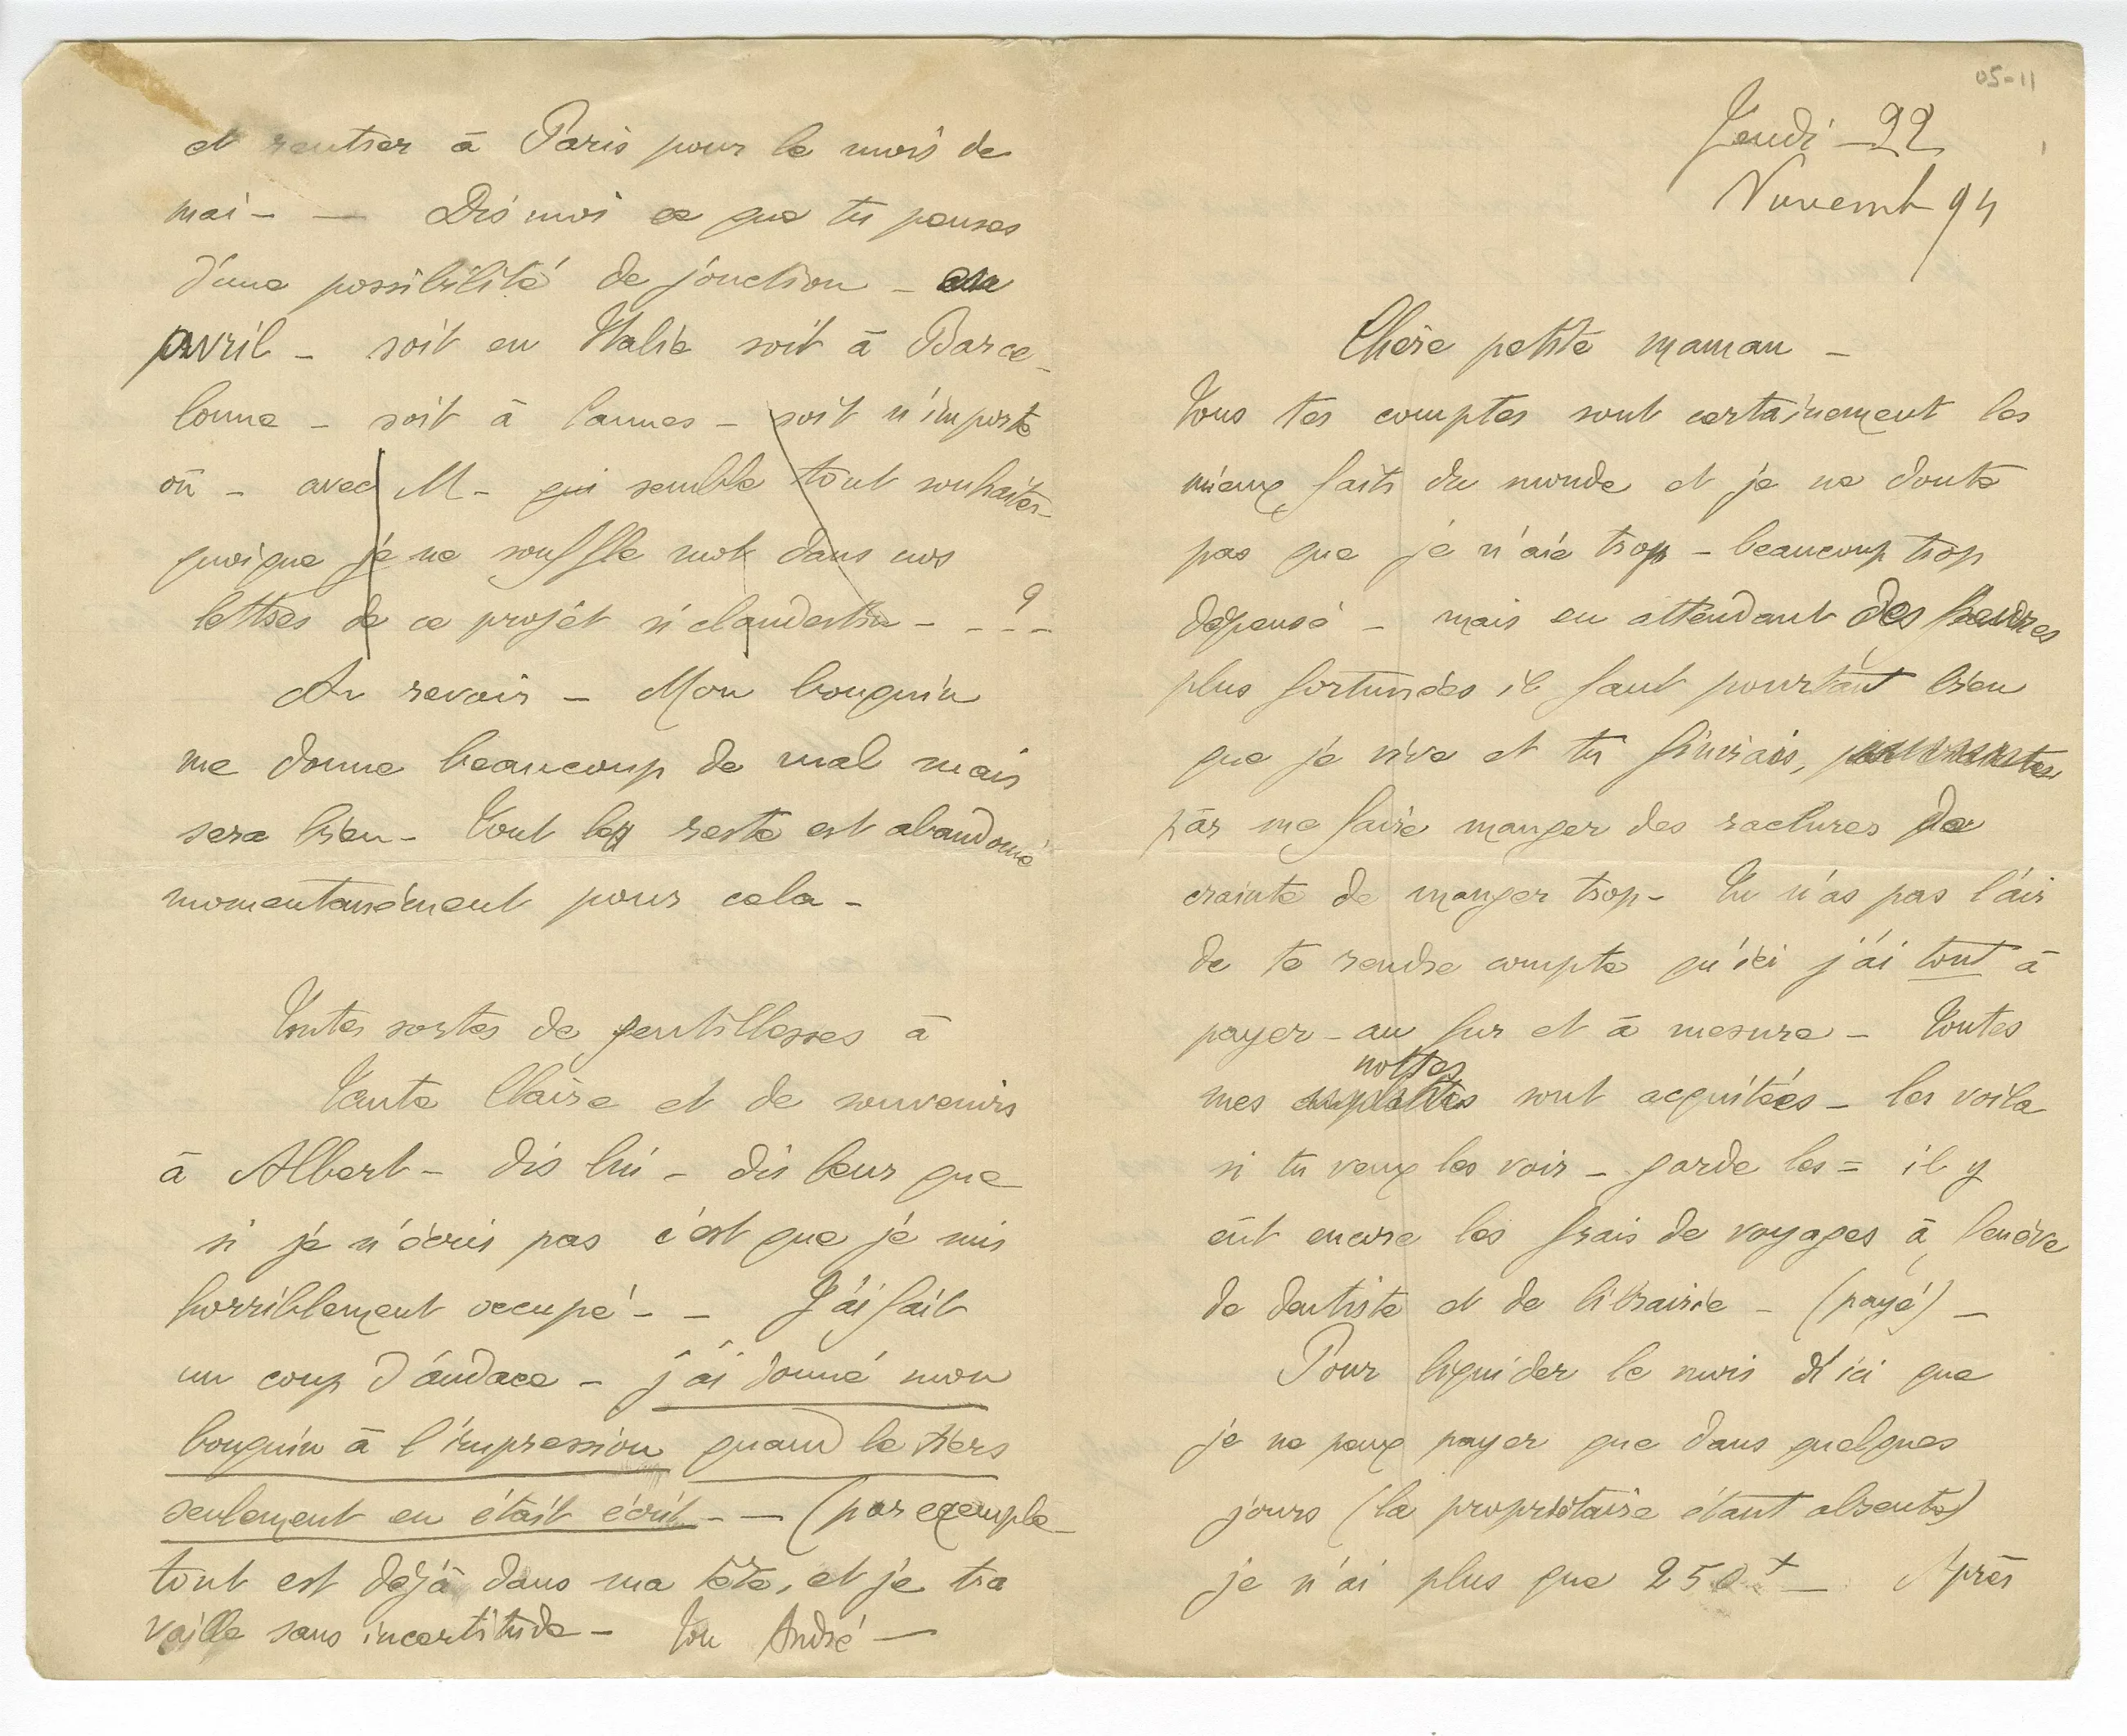 05-11
Jeudi 22
Novemb 94
Chère petite maman –
Tous tes comptes sont certainement les
mieux faits du monde et je ne doute
pas que je n'aie trop – beaucoup trop
dépensé – mais en attendant des heures
plus fortunées il faut pourtant bien
que je vive et tu finirais,
par me faire manger des raclures de
crainte de manger trop – Tu n'as pas l'air
de te rendre compte qu'ici j'ai tout à
payer – au fur et à mesure – Toutes
nottes
mes emplettes sont acquitées – les voila
si tu veux les voir – garde les = il y
eût encore les frais de voyages à Genève
de dentiste et de librairie – (payé) –
Pour liquider le mois d'ici que
je ne peux payer que dans quelques
jours (la propriétaire étant absente)
je n'ai plus que 250 f – Après
et rentrer à Paris pour le mois de
mai – — Dis moi ce que tu penses
d'une possibilité de jonction – en
avril – soit en Italie soit à Barce-
lonne – soit à Cannes – soit n'importe
où – avec M – qui semble tout souhaiter –
quoique je ne souffle mot dans nos
lettres de ce projet si clandestin – – – – ?
Au revoir – Mon bouquin
me donne beaucoup de mal mais
sera bien – Tout le reste est abandonné
momentanément pour cela –
Toutes sortes de gentillesses à
Tante Claire et de souvenirs
à Albert – dis lui – dis leur que
si je n'écris pas c'est que je suis
horriblement occupé – – J'ai fait
un coup d'audace – j'ai donné mon
bouquin à l'impression quand le tiers
seulement en était écrit – — (par exemple
tout est déjà dans ma tête, et je tra
vaille sans incertitude – Ton André —